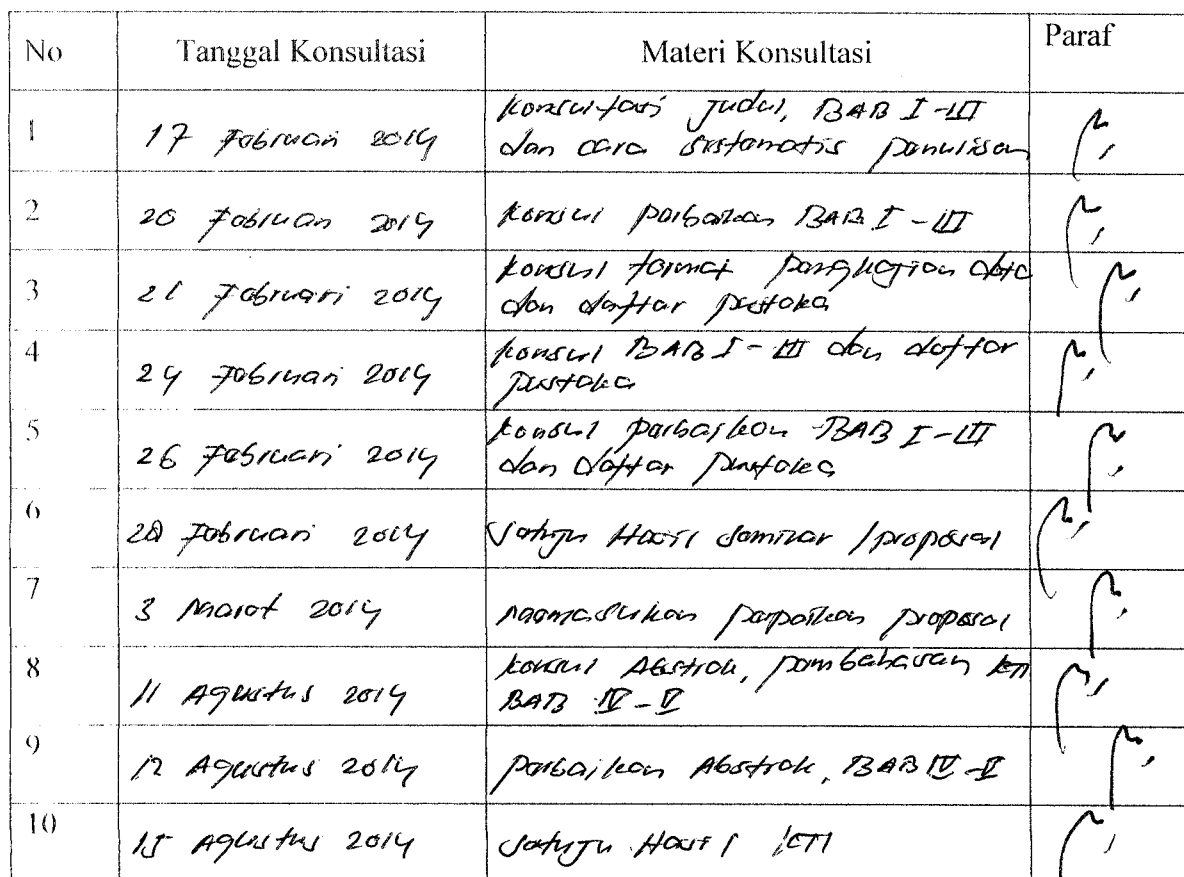 No Tanggal Konsultasi Materi Konsultasi Paraf
1 17 Februari 2014 Konsultasi judul, BAB I-III
dan cara sistematis penulisan
2 20 Februari 2014 Konsul perbaikan BAB I - III
3 21 Februari 2014 Konsul format pengkajian data
dan daftar pustaka
4 24 Februari 2014 Konsul BAB I - III dan daftar
pustaka
5 26 Februari 2014 Konsul perbaikan BAB I-III
dan daftar pustaka
6 28 Februari 2014 Setuju Hasil seminar / proposal
7 3 Maret 2014 Memasukan perbaikan proposal
8 11 Agustus 2014 Konsul Abstrak, pembahasan KTI
BAB IV - V
9 12 Agustus 2014 Perbaikan Abstrak, BAB IV - V
10 15 Agustus 2014 Setuju Hasil KTI